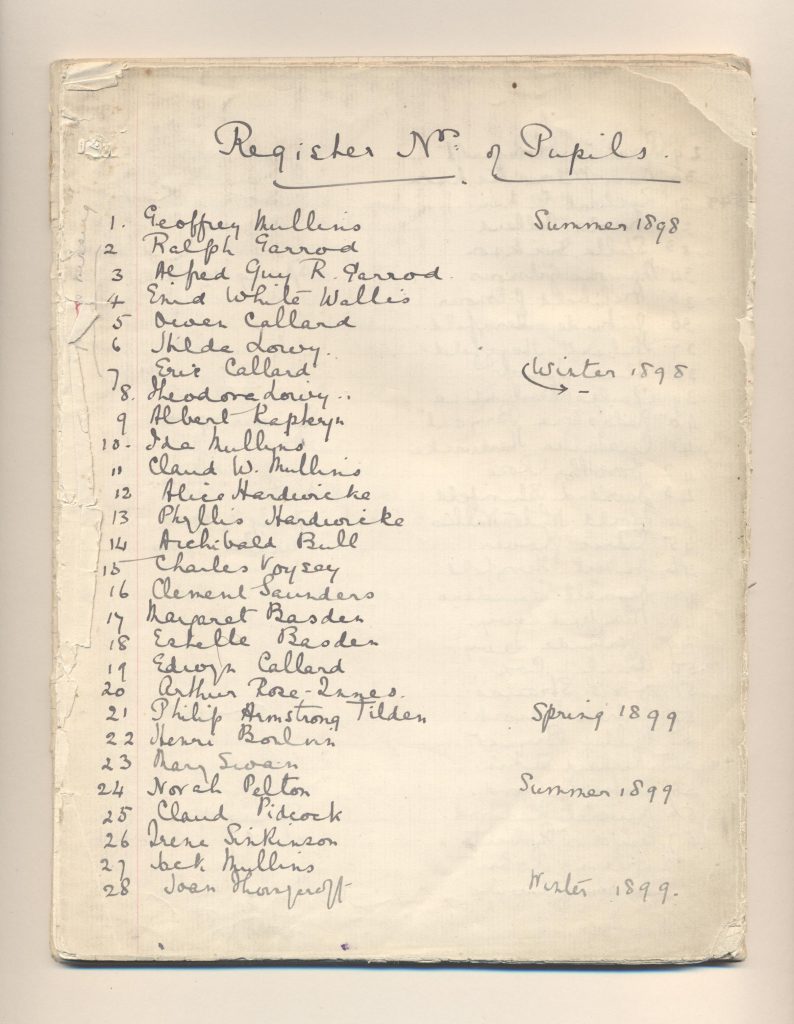 Register Nr. of Pupils.
1. Geoffrey Mullins Summer 1898
2 Ralph Garrod
3 Alfred Guy R. Garrod.
4 Enid White Wallis
5 Owen Callard
6 Hilda Lowy.
7 Eric Callard Winter 1898
8. Theodora Lowy..
9 Albert
10. Ida Mullins
11 Claud W. Mullins
12 Alice Hardwicke
13 Phyllis Hardwicke
14 Archibald Bull
15 Charles Voysey
16 Clement Saunders
17 Margaret Basden
18 Estelle Basden
19 Edwyn Callard
20 Arthur Rose-Innes.
21 Philip Armstrong Tilden Spring 1899
22 Henri
23 Mary Swan
24 Norah Pelton Summer 1899
25 Claud Pidcock
26 Irene Sinkinson
27 Jack Mullins
28 Joan Thornycroft Winter 1899.